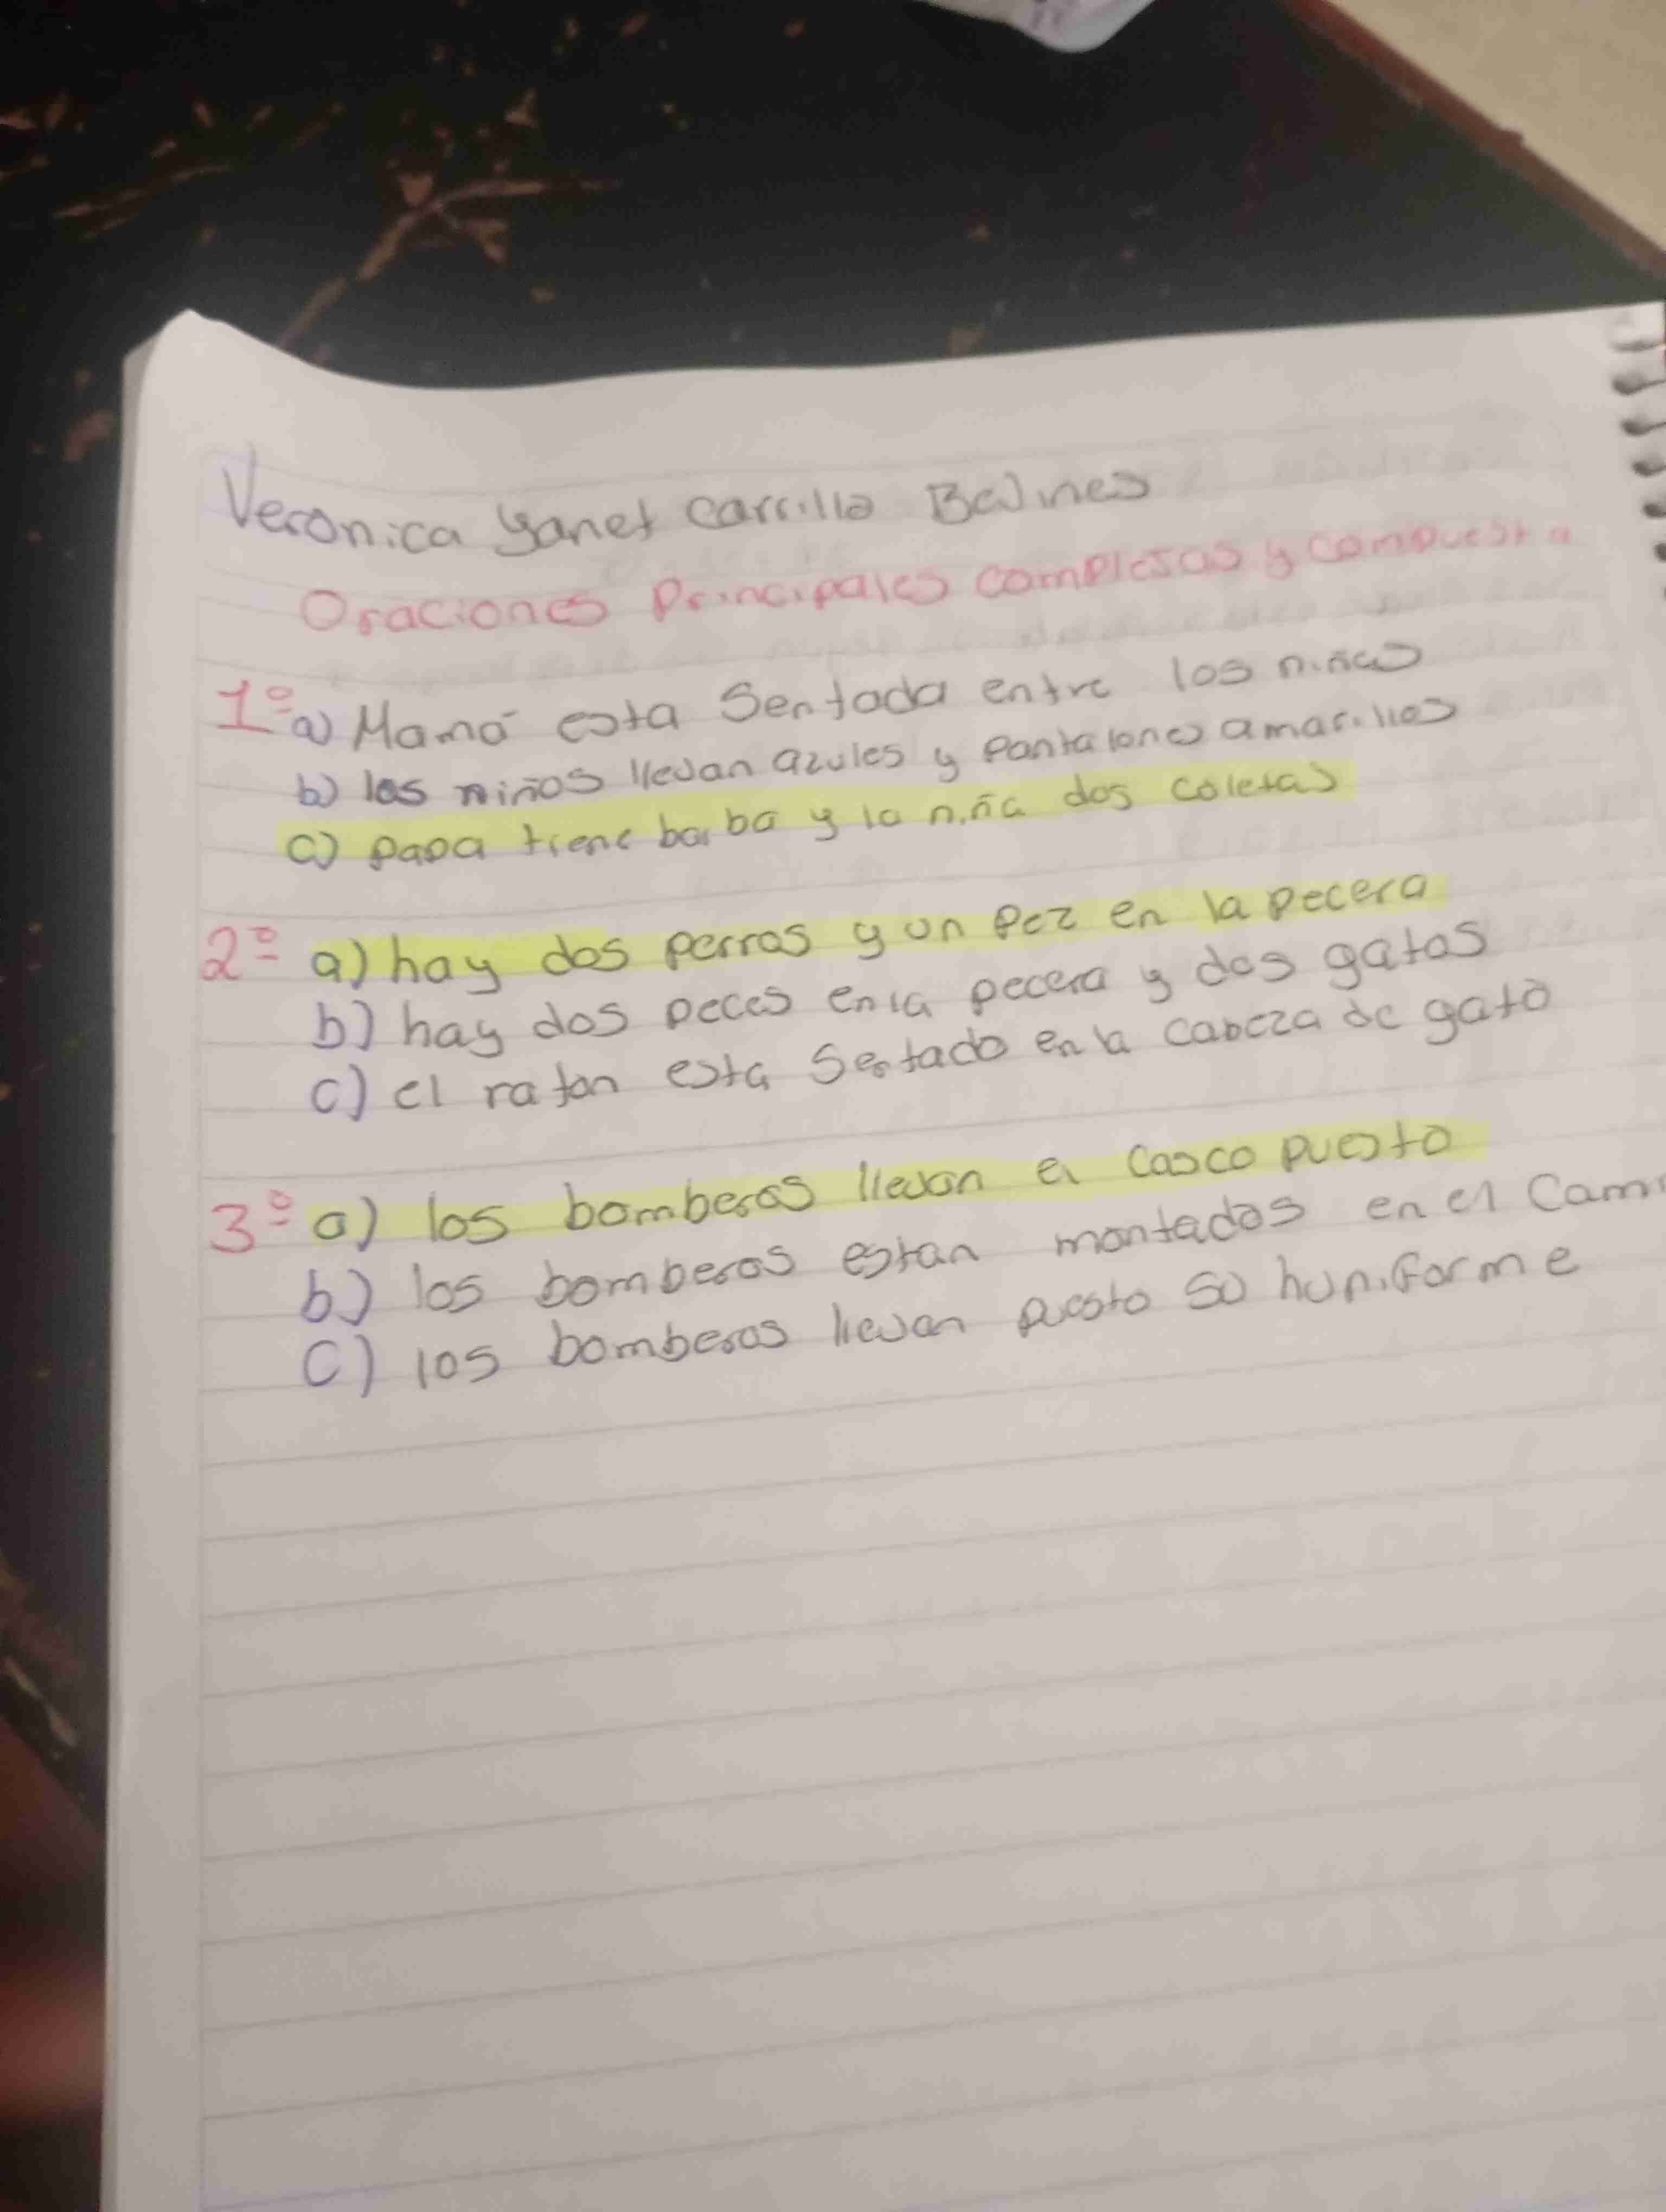 Veronica Yanet Carrillo
Oraciones Principales complejas y compuesta
1º a) Mamá esta Sentada entre los niños
b) los niños llevan azules y pantalones amarillos
c) papa tiene barba y la niña dos coletas
2º a) hay dos perros y un pez en la pecera
b) hay dos peces en la pecera y dos gatos
c) el raton esta Sentado en la cabeza de gato
3º a) los bomberos llevan el casco puesto
b) los bomberos estan montados en el Cam
C) los bomberos llevan puesto su huniforme